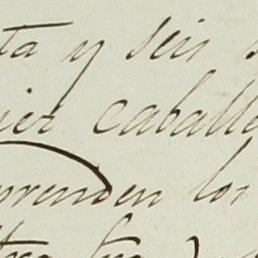 ta y seis
ier caballe
prenden los